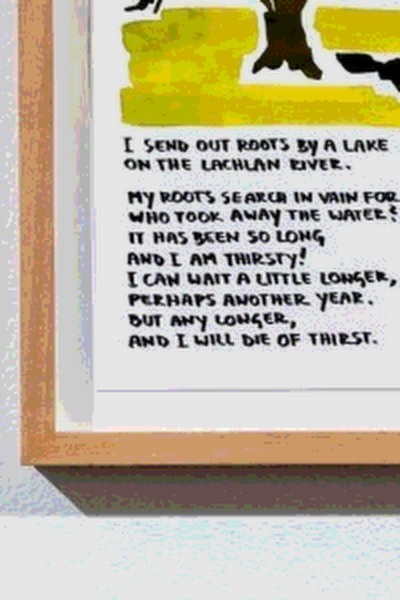 I SEND OUT ROOTS BY A LAKE
ON THE LACHLAN RIVER.
MY ROOTS SEARCH IN VAIN FOR
WHO TOOK AWAY THE WATER?
IT HAS BEEN SO LONG
AND I AM THIRSTY!
I CAN WAIT A LITTLE LONGER,
PERHAPS ANOTHER YEAR.
BUT ANY LONGER,
AND I WILL DIE OF THIRST.